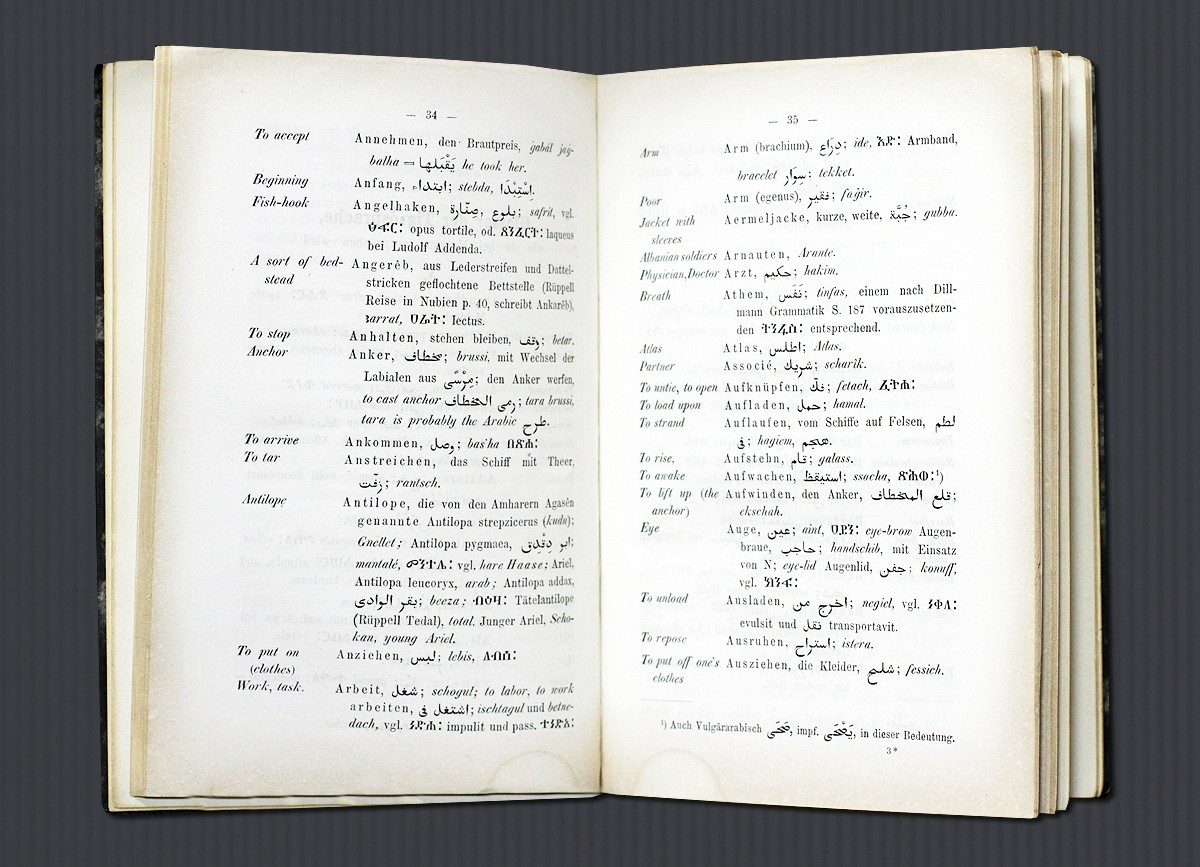 — 34 —
To accept Annehmen, den Brautpreis, gabál jag-
balha = يَقْبَلها he took her.
Beginning Anfang, ابتداء; stebda, اِسْتِبْدَا.
Fish-hook Angelhaken, صِنّارة, بلوع; safrit, vgl.
opus tortile, od. laqueus
bei Ludolf Addenda.
A sort of bed- Angerêb, aus Lederstreifen und Dattel-
stead stricken geflochtene Bettstelle (Rüppell
Reise in Nubien p. 40, schreibt Ankarêb),
ʒarrat, ዐራት፡ lectus.
To stop Anhalten, stehen bleiben, وقف; betar.
Anchor Anker, مخطاف; brussi, mit Wechsel der
Labialen aus مِرْسًى; den Anker werfen,
to cast anchor رمى المخطاف; tara brussi,
tara is probably the Arabic طرح.
To arrive Ankommen, وصل; bas'ha በጽሐ፡
To tar Anstreichen, das Schiff mit Theer,
زفّت; rantsch.
Antilope Antilope, die von den Amharern Agasên
genannte Antilopa strepzicerus (kudu);
Gnellet; Antilopa pygmaea, ابو دِقْدِق;
mantalé, መንተሌ፡ vgl. hare Haase; Ariel,
Antilopa leucoryx, arab; Antilopa addax,
بقر الوادى; beeza; ብዕዛ፡ Tätelantilope
(Rüppell Tedal), total. Junger Ariel, Scho-
kan, young Ariel.
To put on Anziehen, لبس; lebis, ለብሰ፡
(clothes)
Work, task. Arbeit, شغل; schogul; to labor, to work
arbeiten, اشتغل فى; ischtagul und betne-
dach, vgl. ነድሐ፡ impulit und pass. ተነድአ፡
— 35 —
Arm Arm (brachium), ذِرَاع; ide, እድ፡ Armband,
bracelet سِوَار; tekket.
Poor Arm (egenus), فقير; faģir.
Jacket with Aermeljacke, kurze, weite, جُبَّة; gubba.
sleeves
Albanian soldiers Arnauten, Arante.
Physician, Doctor Arzt, حكيم; hakim.
Breath Athem, نَفَس; tinfas, einem nach Dill-
mann Grammatik S. 187 vorauszusetzen-
den ትንፋስ፡ entsprechend.
Atlas Atlas, اطلس; Atlas.
Partner Associé, شريك; scharîk.
To untie, to open Aufknüpfen, فكّ; fetach, ፈትሐ፡
To load upon Aufladen, حمل; hamal.
To strand Auflaufen, vom Schiffe auf Felsen, لطم
فى; hagiem, هجم.
To rise, Aufstehn, قام; galass.
To awake Aufwachen, استيقظ; ssacha, ጸሐወ፡¹)
To lift up (the Aufwinden, den Anker, قلع المخطاف;
anchor) ekschah.
Eye Auge, عين; aint, ዐይን፡ eye-brow Augen-
braue, حاجب; handschib, mit Einsatz
von N; eye-lid Augenlid, جفن; konuff,
vgl. ክንፍ፡
To unload Ausladen, اخرج من; negiel, vgl. ነቀለ፡
evulsit und نقل transportavit.
To repose Ausruhen, استراح; istera.
To put off one's Ausziehen, die Kleider, شلح; fessich.
clothes
¹) Auch Vulgärarabisch صَحَى, impf. يَصْحَى, in dieser Bedeutung.
3*